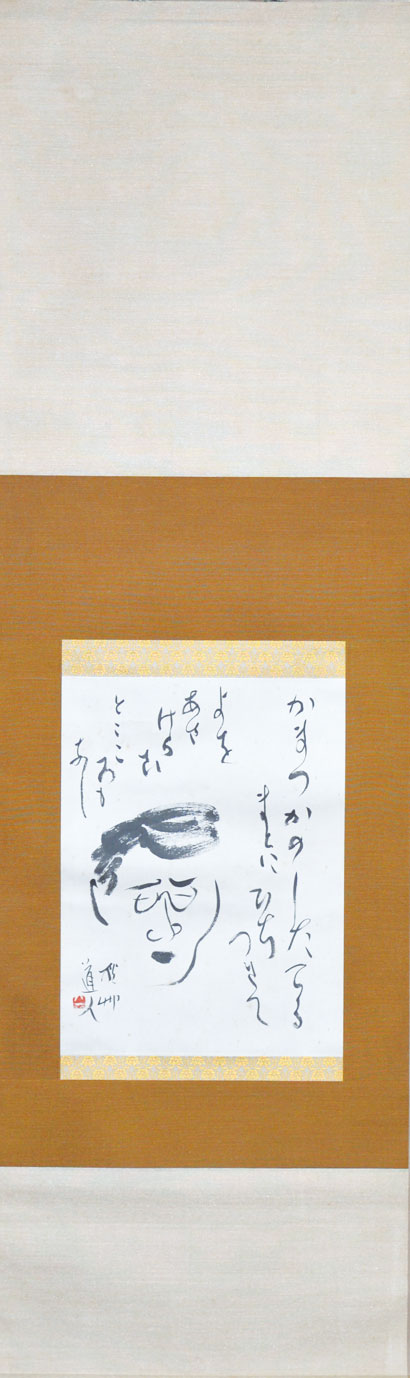 かまつかのしたてる
まとにひちつきて
よを
あさ
けらむ
とここ
ろも
なし
秋艸
道人